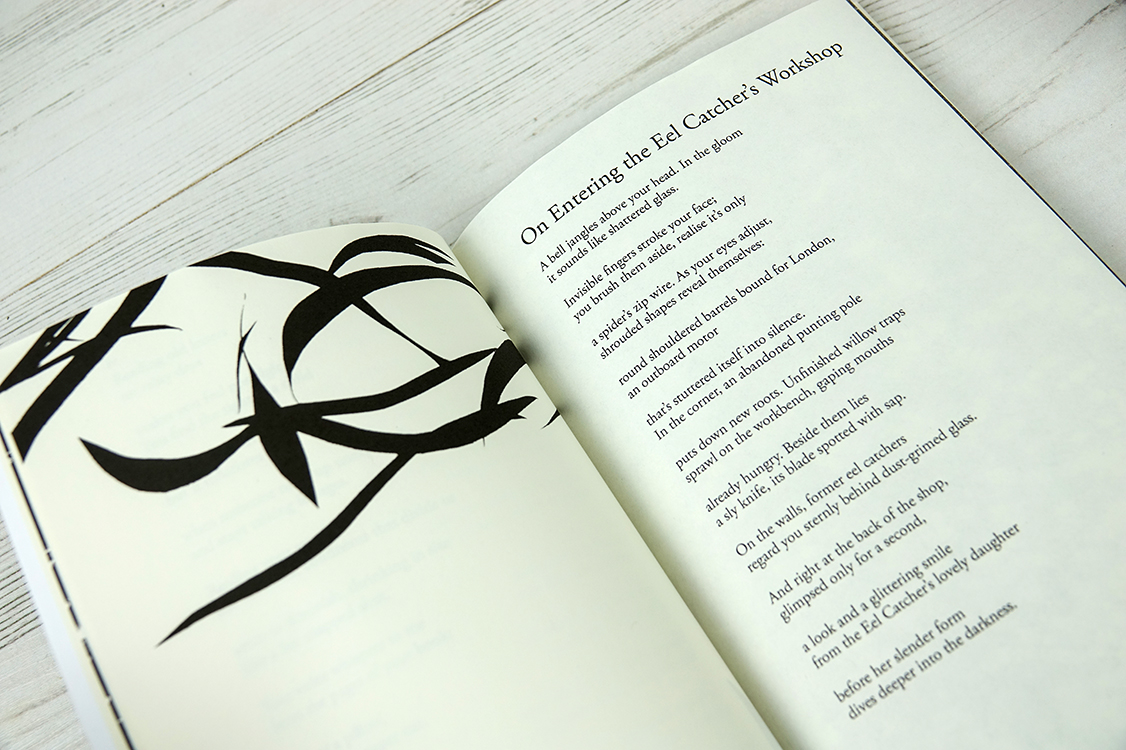 On Entering the Eel Catcher's Workshop
A bell jangles above your head. In the gloom
it sounds like shattered glass.
Invisible fingers stroke your face;
you brush them aside, realise it's only
a spider's zip wire. As your eyes adjust,
shrouded shapes reveal themselves:
round shouldered barrels bound for London,
an outboard motor
that's stuttered itself into silence.
In the corner, an abandoned punting pole
puts down new roots. Unfinished willow traps
sprawl on the workbench, gaping mouths
already hungry. Beside them lies
a sly knife, its blade spotted with sap.
On the walls, former eel catchers
regard you sternly behind dust-grimed glass.
And right at the back of the shop,
glimpsed only for a second,
a look and a glittering smile
from the Eel Catcher's lovely daughter
before her slender form
dives deeper into the darkness.